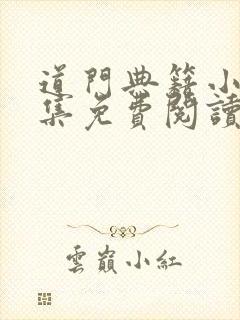 道門典籍小
集免費閱讀
雲巔小紅